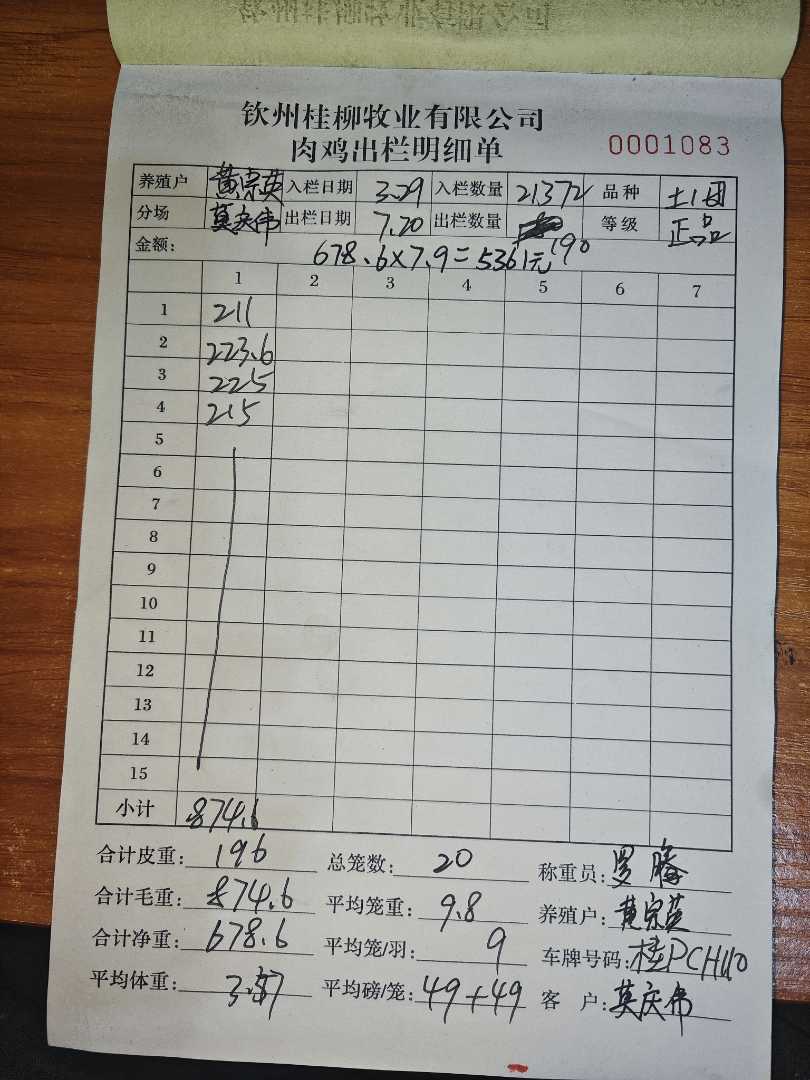 钦州桂柳牧业有限公司
肉鸡出栏明细单 0001083
养殖户 黄宗英 入栏日期 3.29 入栏数量 21372 品种 土1团
分场 莫庆伟 出栏日期 7.20 出栏数量 190 等级 正品
金额: 678.6×7.9=5361元
1 2 3 4 5 6 7
1 211
2 223.6
3 225
4 215
5
6
7
8
9
10
11
12
13
14
15
小计 874.6
合计皮重: 196 总笼数: 20 称重员: 罗腾
合计毛重: 874.6 平均笼重: 9.8 养殖户: 黄宗英
合计净重: 678.6 平均笼/羽: 9 车牌号码: 桂PCH110
平均体重: 3.57 平均磅/笼: 49+49 客户: 莫庆伟